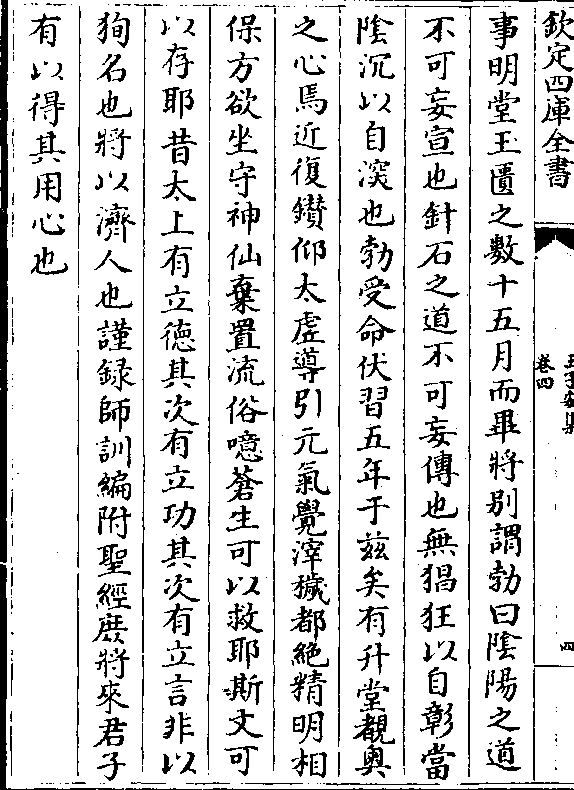 欽定四庫全書
王子安集
卷四
四
事明堂玉匱之數十五月而畢將別謂勃曰陰陽之道
不可妄宣也針石之道不可妄傳也無猖狂以自彰當
陰沉以自深也勃受命伏習五年于兹矣有升堂覩奥
之心焉近復鑚仰太虚導引元氣覺滓穢都絶精明相
保方欲坐守神仙棄置流俗噫蒼生可以救耶斯文可
以存耶昔太上有立徳其次有立功其次有立言非以
狥名也將以濟人也謹録師訓編附聖經庻將來君子
有以得其用心也